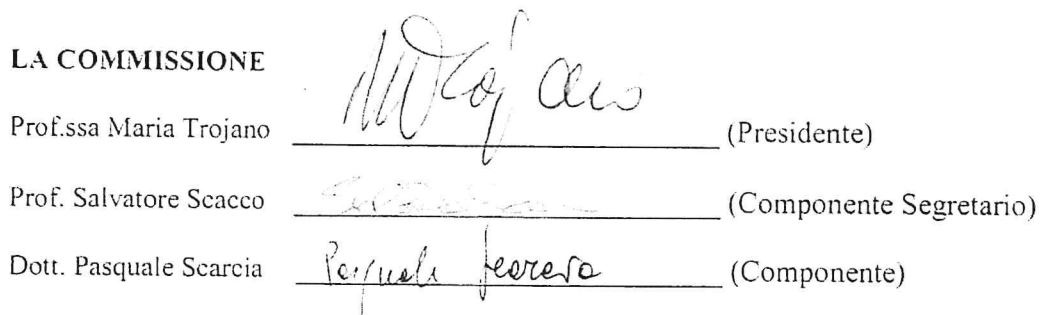 LA COMMISSIONE
Prof.ssa Maria Trojano (Presidente)
Prof. Salvatore Scacco (Componente Segretario)
Dott. Pasquale Scarcia Pasquale Scarcia (Componente)